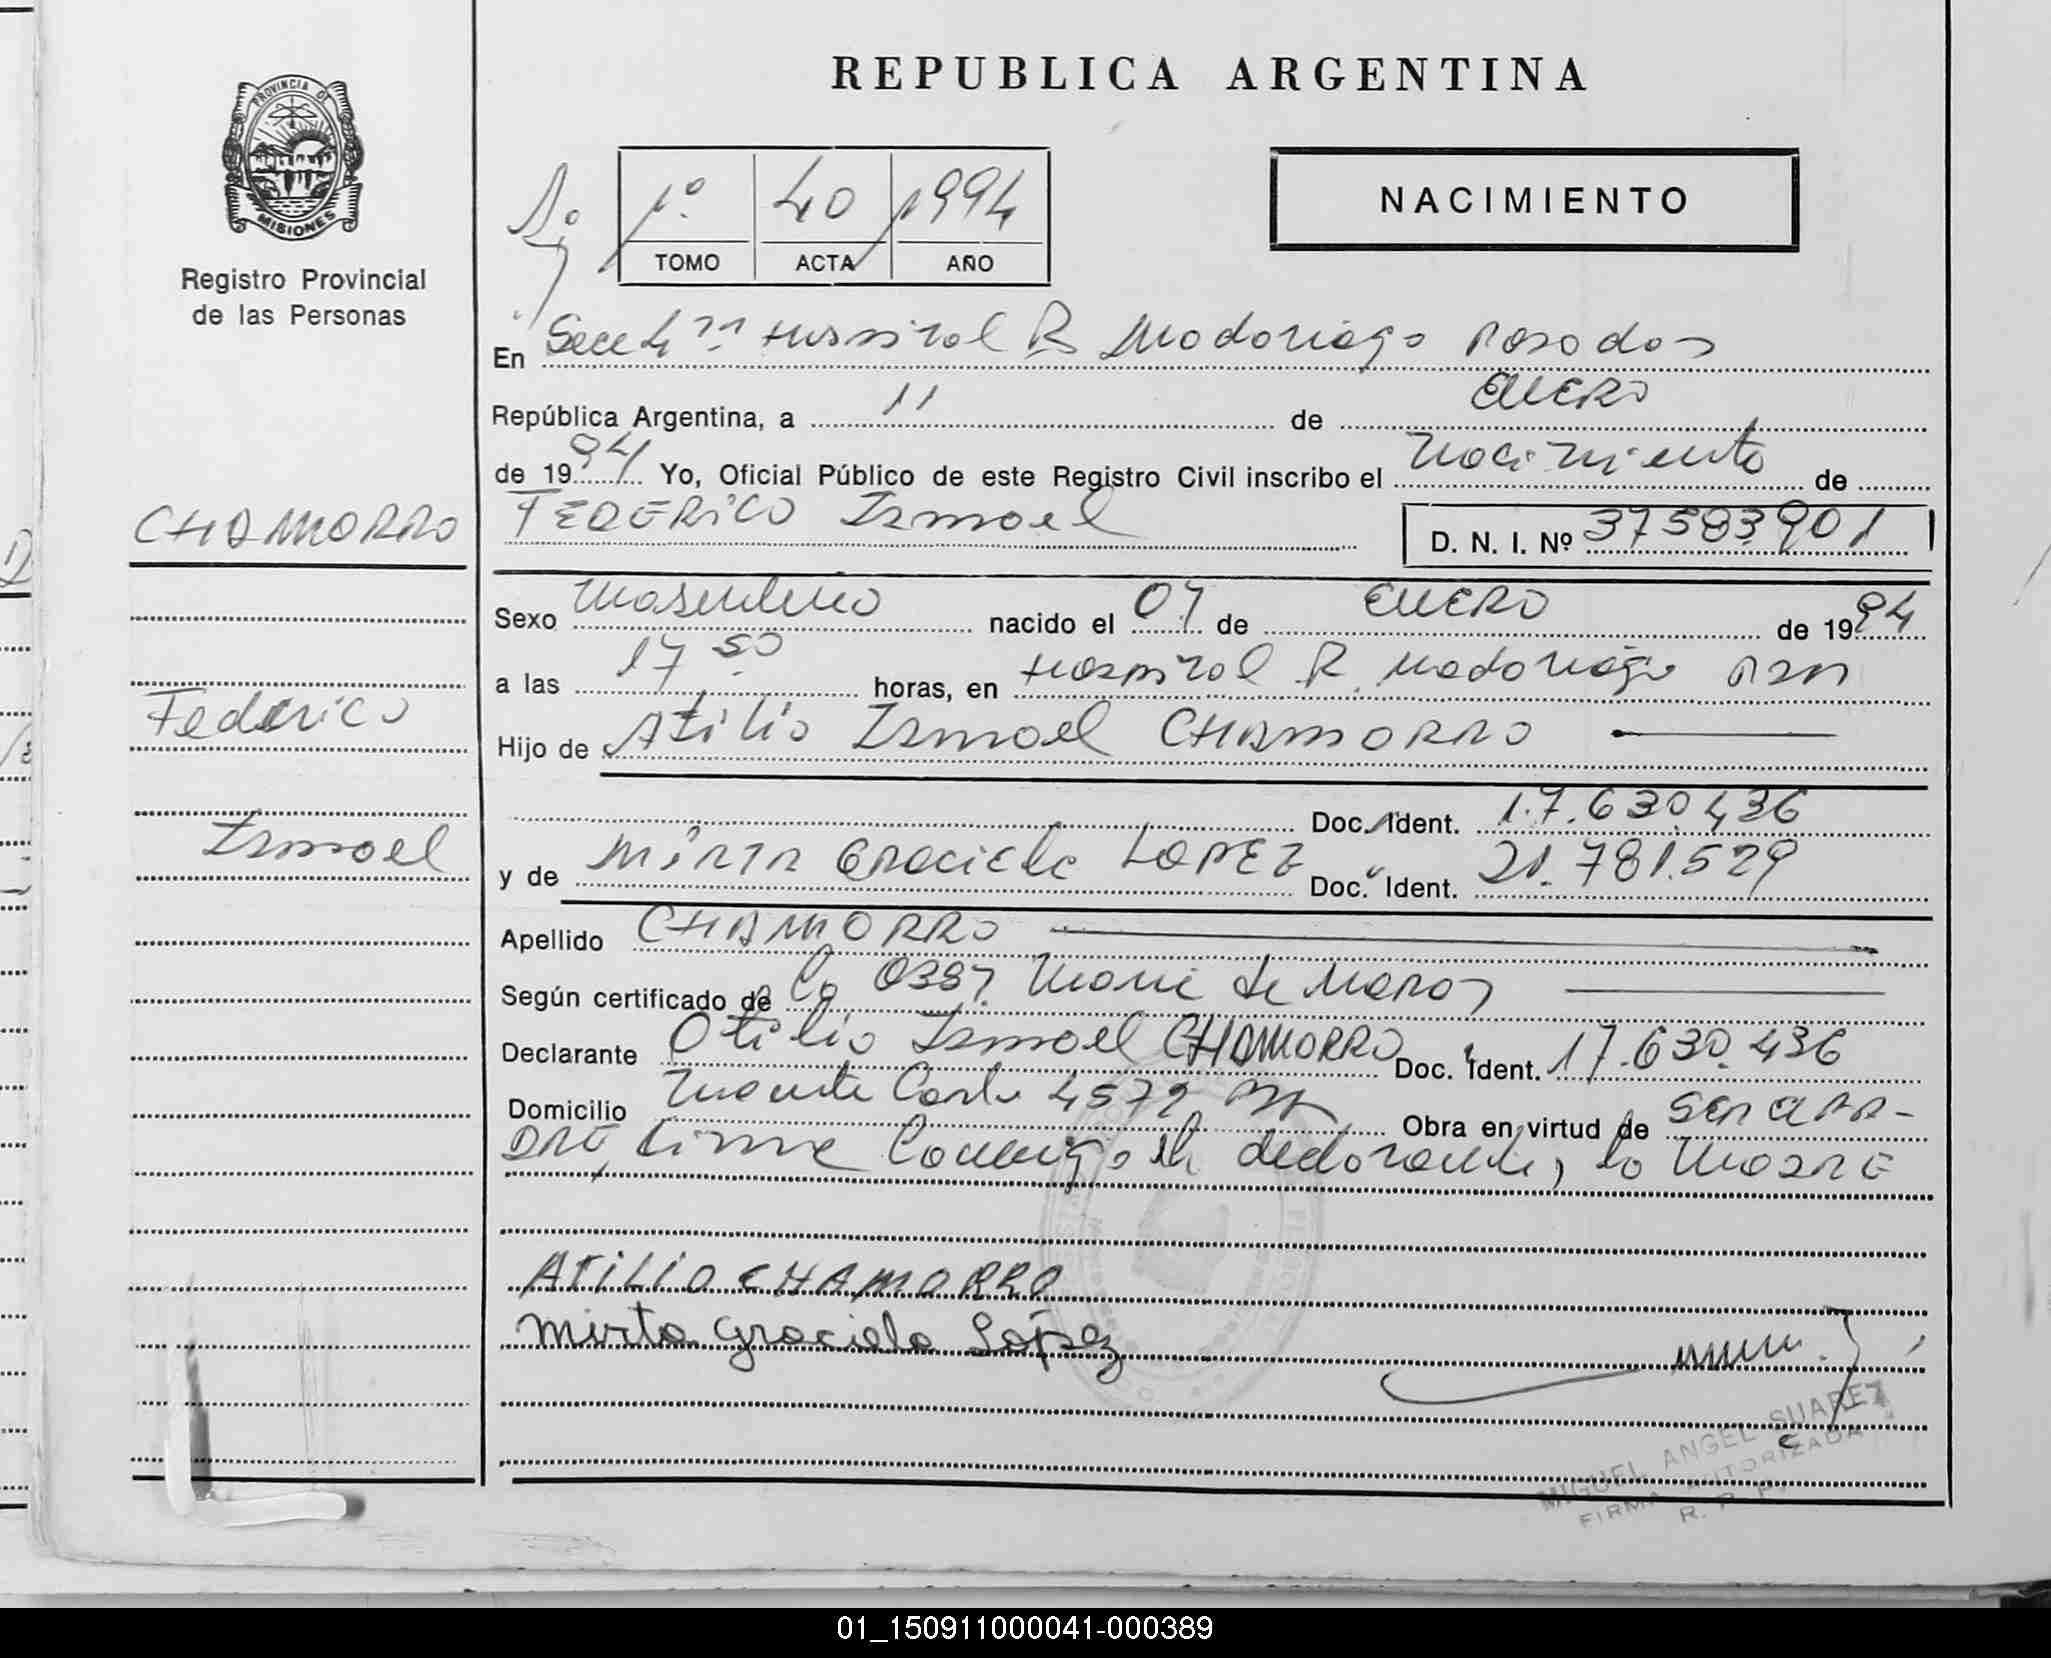 REPUBLICA ARGENTINA
PROVINCIA DE
MISIONES
Registro Provincial
de las Personas
1º 40 1994
TOMO ACTA AÑO
NACIMIENTO
En Secc 4ª Hospital R Madariaga Posadas
República Argentina, a 11 de ENERO
de 1994 Yo, Oficial Público de este Registro Civil inscribo el Nacimiento de
CHAMORRO
FEDERICO Ismael D. N. I. Nº 37583901
Sexo Masculino nacido el 07 de ENERO de 1994
a las 17 50 horas, en Hospital R. Madariaga
Federico
Hijo de Atilio Ismael CHAMORRO
Doc. Ident. 17.630.436
Ismael
y de MIRTA Graciela LOPEZ Doc. Ident. 21.781.529
Apellido CHAMORRO
Según certificado de
Declarante Otilio Ismael CHAMORRO Doc. Ident. 17.630.436
Domicilio 4572 Obra en virtud de SER EL PA-
DRE, firma Conmigo el declarante, la MADRE
ATILIO CHAMORRO
Mirta Graciela López
MIGUEL ANGEL SUAREZ
FIRMA AUTORIZADA
R. P. P.
01_150911000041-000389